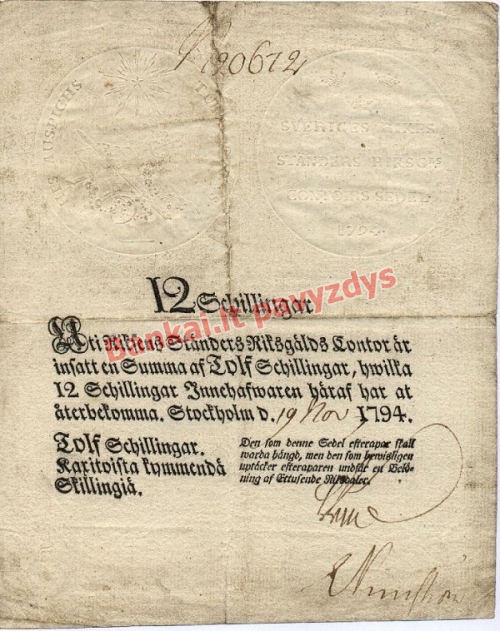 No 20672
HIS AUSPICIIS TUT
SVERIGES RIKES
STÄNDERS RIKSG:S
CONTORS SEDEL
1794
12 Schillingar
Uti Riksens Ständers Riksgälds Contor är
insatt en Summa af Tolf Schillingar, hwilka
12 Schillingar Innehafwaren häraf har at
återbekomma. Stockholm d. 19 Nov 1794.
Tolf Schillingar.
Karitoista kymmendä
Skillingiä.
Den som denne Sedel efterapar skall
warda hängd, men den som bewisligen
uptäcker efteraparen undfår en Belö-
ning af Ettusende Riksdaler.
Bankai.lt pavyzdys